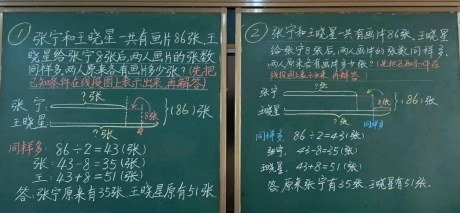 ① 张宁和王晓星一共有画片86张,王
晓星给张宁8张后,两人画片的张数
同样多,两人原来各有画片多少张?(先把
已知条件在线段图上表示出来,再解答)
?张
张宁:
8张
(86)张
王晓星:
?张
同样多: 86÷2=43(张)
张: 43-8=35(张)
王: 43+8=51(张)
答:张宁原来有35张,王晓星原有51张.
② 张宁和王晓星一共有画片86张,王晓星
给张宁8张后,两人画片的张数同样多,
两人原来各有画片多少张?(先把已知条件在
线段图上表示出来,再解答)
?张
张宁
8张
86张
王晓星
?张
同样多
同样多: 86÷2=43(张)
张宁: 43-8=35(张)
王晓星: 43+8=51(张)
答:原来张宁有35张,王晓星有51张.